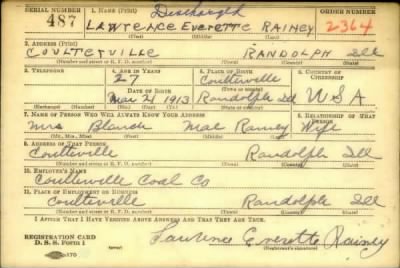 SERIAL NUMBER 1. NAME (Print) Discharged ORDER NUMBER
487 LAWRENCE EVERETTE RAINEY 2364
(First) (Middle) (Last)
2. ADDRESS (Print)
COULTERVILLE RANDOLPH ILL
(Number and street or R. F. D. number) (Town) (County) (State)
3. TELEPHONE 4. AGE IN YEARS 5. PLACE OF BIRTH 6. COUNTRY OF CITIZENSHIP
27 Coulterville
DATE OF BIRTH (Town or county)
Mar 21 1913 Randolph Ill USA
(Exchange) (Number) (Mo.) (Day) (Yr.) (State or country)
7. NAME OF PERSON WHO WILL ALWAYS KNOW YOUR ADDRESS 8. RELATIONSHIP OF THAT PERSON
Mrs Blanch Mae Rainey Wife
(Mr., Mrs., Miss) (First) (Middle) (Last)
9. ADDRESS OF THAT PERSON
Coulterville Randolph Ill
(Number and street or R. F. D. number) (Town) (County) (State)
10. EMPLOYER'S NAME
Coulterville Coal Co
11. PLACE OF EMPLOYMENT OR BUSINESS
Coulterville Randolph Ill
(Number and street or R. F. D. number) (Town) (County) (State)
I AFFIRM THAT I HAVE VERIFIED ABOVE ANSWERS AND THAT THEY ARE TRUE.
REGISTRATION CARD
D. S. S. Form 1 Lawrence Everette Rainey
(Registrant's signature)